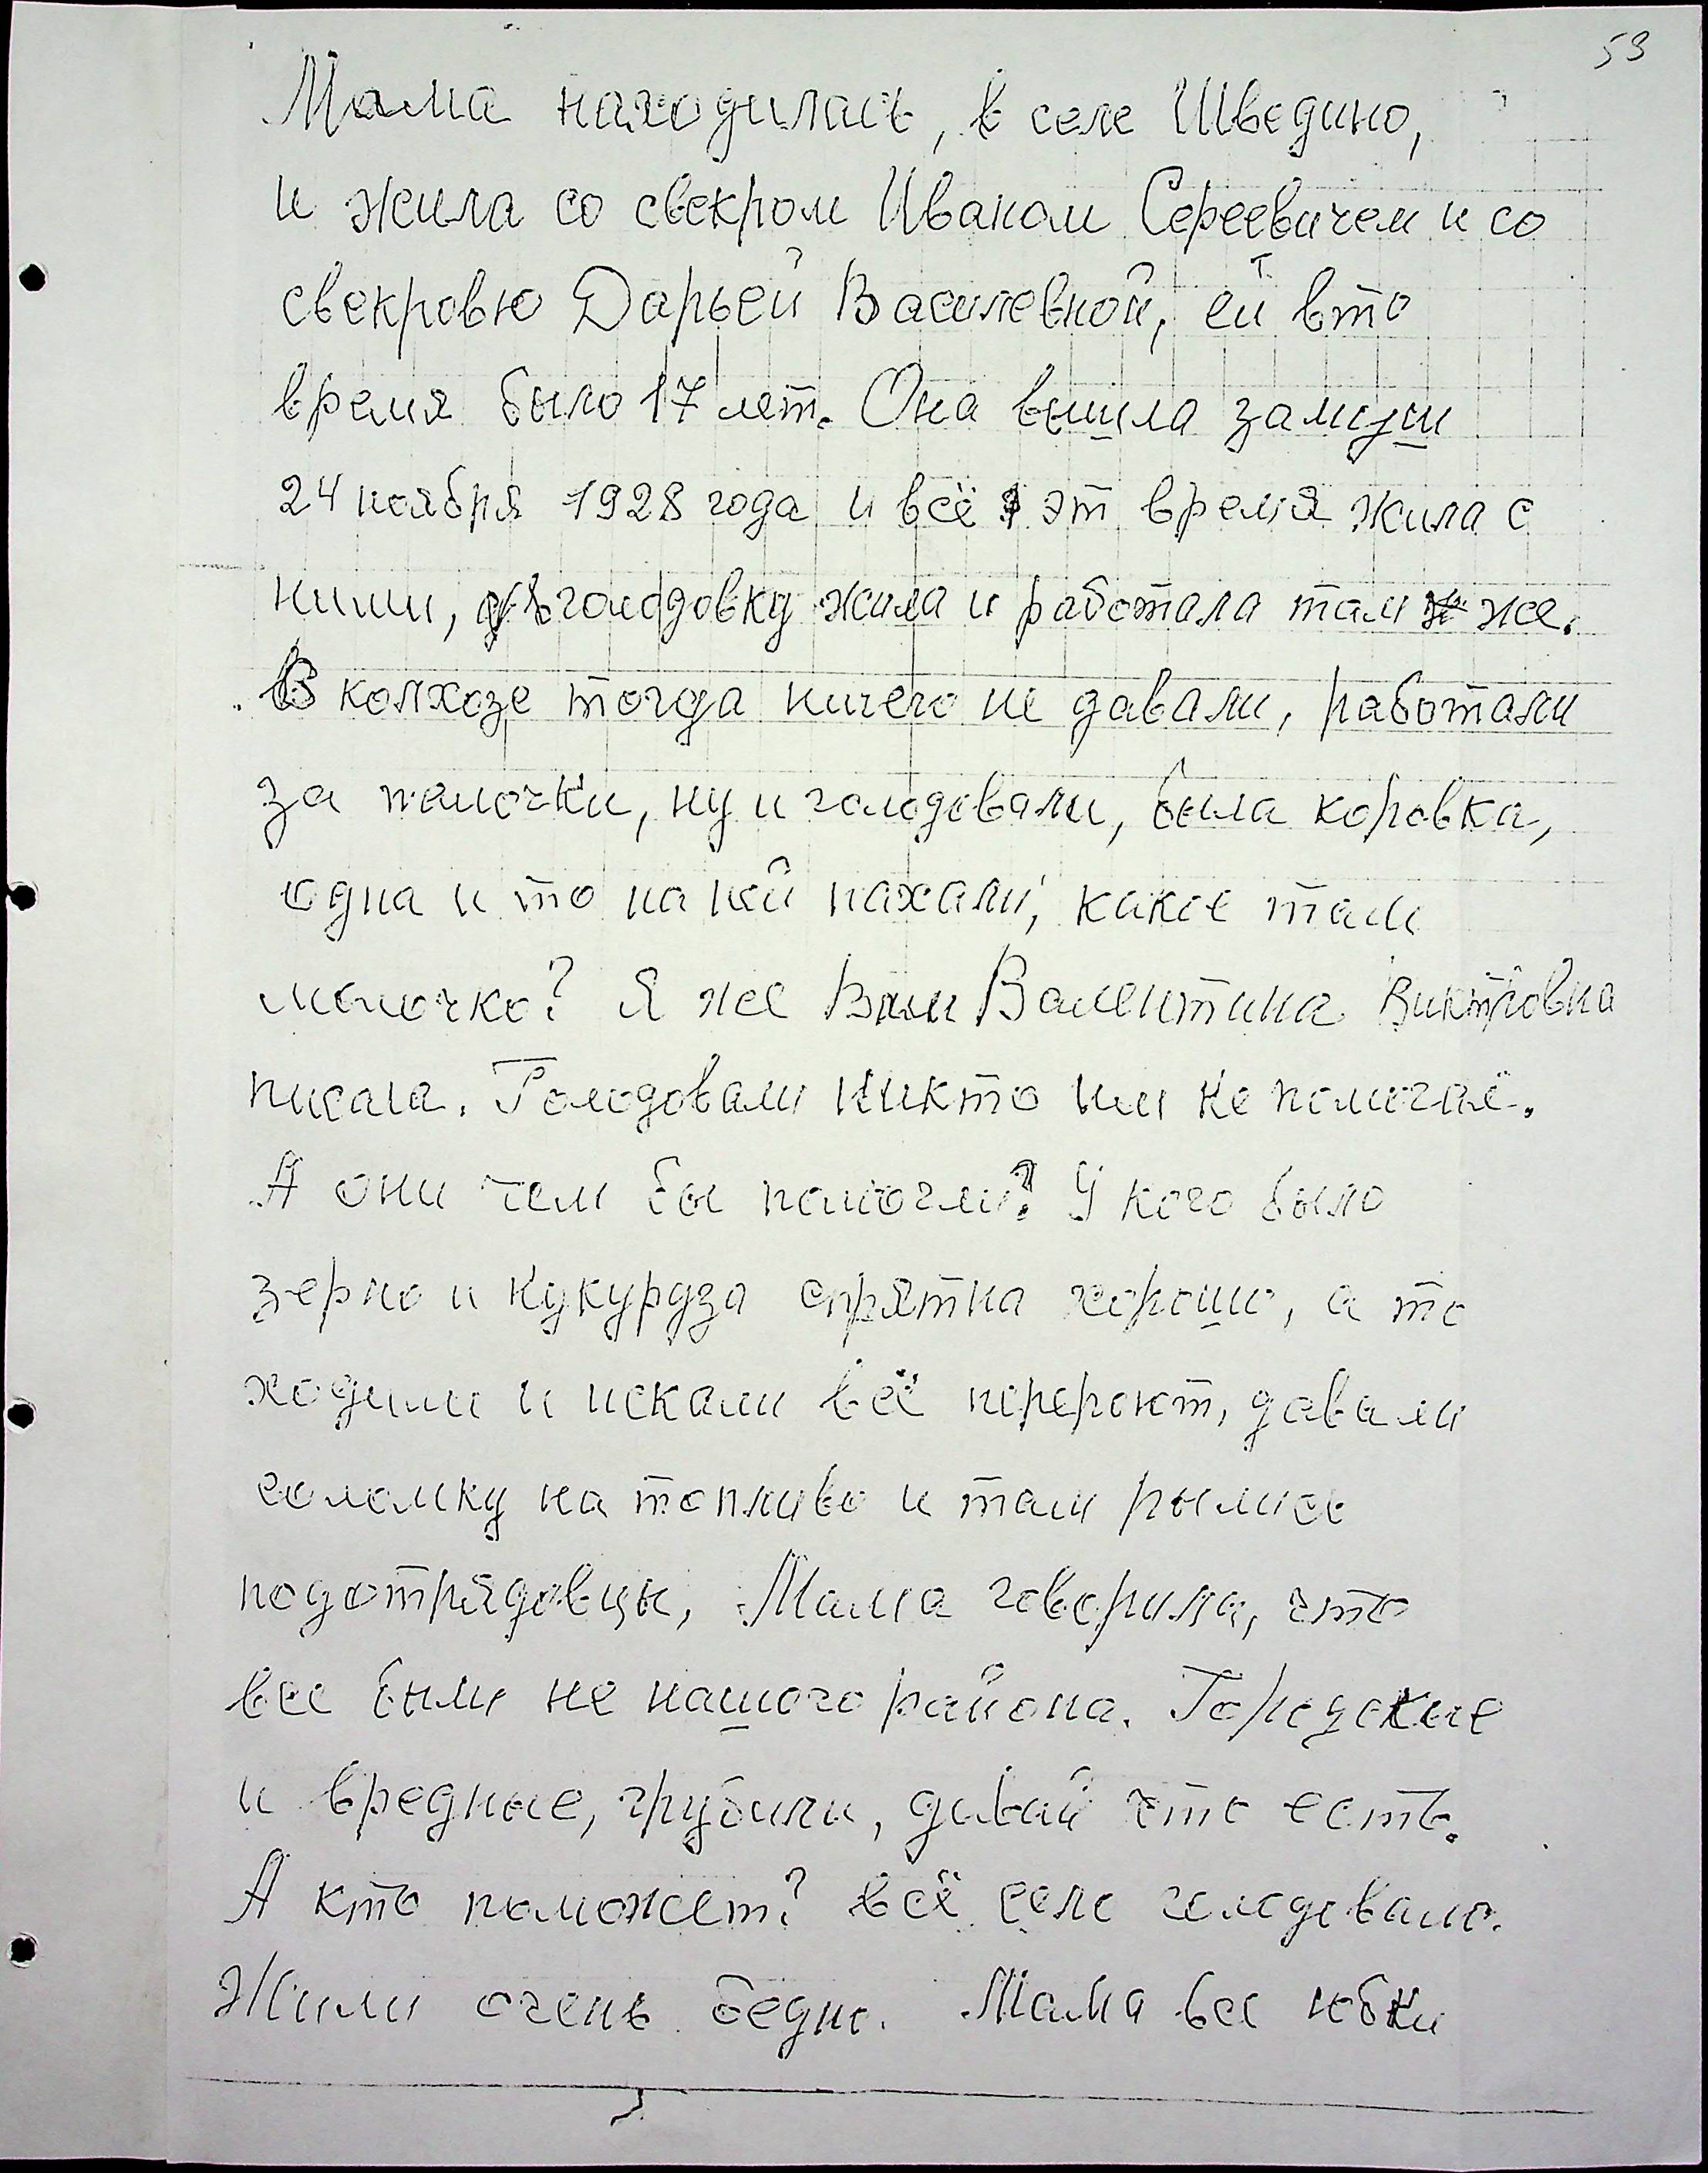 53
Мама находилась, в селе Шведино,
и жила со свекром Иваном Сереевичем и со
свекровю Дарьей Василевной, ей вто
время было 17 лет. Она вышла замуш
24 ноября 1928 года и всё эт время жила с
ними, голодовку жила и работала там же.
В колхозе тогда ничего не давали, работали
за палочки, ну и голодовали, была коровка,
одна и то на ней пахали, какое там
молочко? Я же Вам Валентина Виктровна
писала. Голодовали никто им не помогал.
А они чем бы помогли? У кого было
зерно и кукурдза спрятна хорошо, а то
ходили и искали всё перероют, давали
соломку на топливо и там рылись
подотрядовцы, Мама говорила, что
все были не нашого района. Городские
и вредные, грубили, давай что есть.
А кто поможет? всё село голодовало.
Жили очень бедно. Мама все юбки